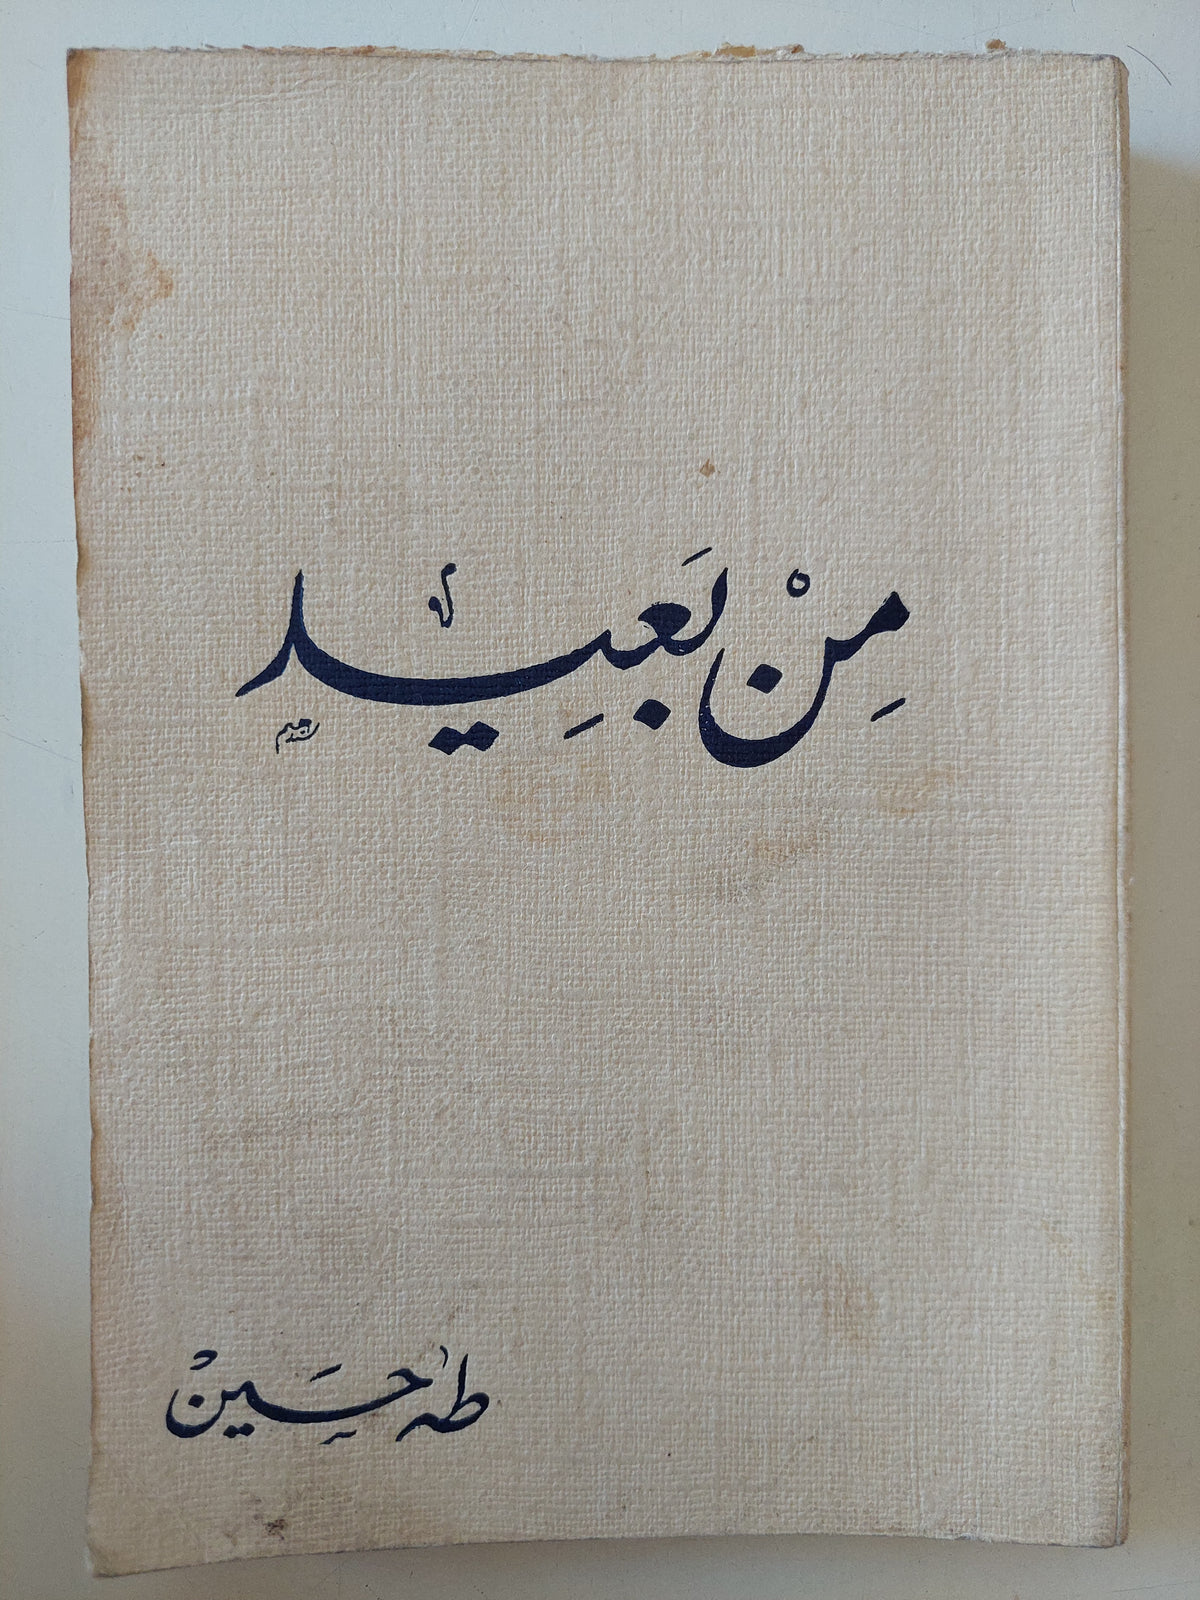 مِنْ بَعِيِد
طه حسَين